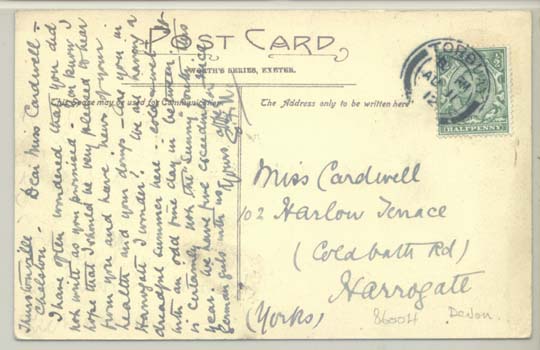 POST CARD
WORTH'S SERIES, EXETER.
This space may be used for Communication.
The Address only to be written here
TORQUAY
AU
12
HALFPENNY
Thurstonville
Chelston -
Dear Miss Cardwell -
I have often wondered that you did
not write as you promised - You know I
hope that I should be very pleased to hear
from you and have news of your
health and your doings - Are you in
Harrogate I wonder? We are having a
dreadful summer here - coldness & wet
with an odd fine day in between. This
is certainly not the Sunny South this
year. We have five exceedingly nice
German girls with us. Yours affly
Miss Cardwell
102 Harlow Terrace
(Coldbath Rd)
Harrogate
(Yorks)
86004
Devon.